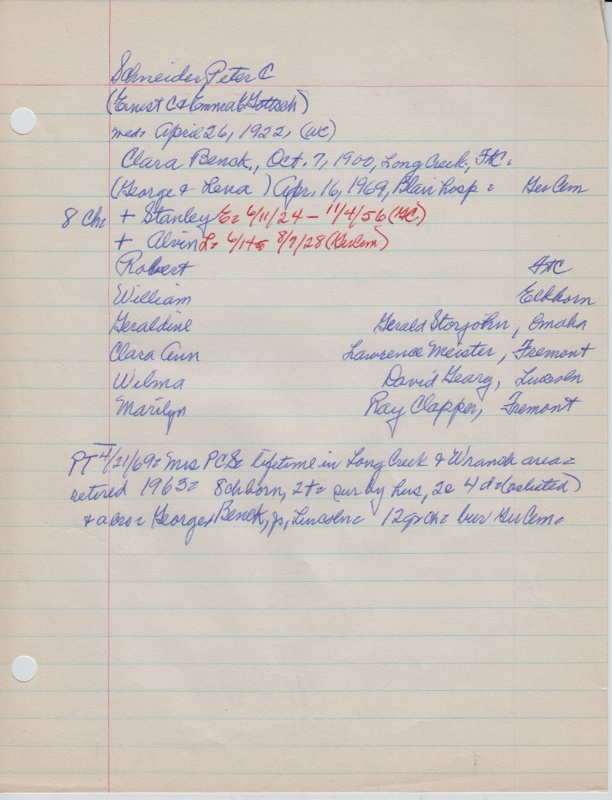 Schneider, Peter C
(Ernest C & Emma E Gottsch)
med= April 26, 1922, (WC)
Clara Benck., Oct. 7, 1900, Long Creek, Ft C.
(George & Lena ) Apr. 16, 1969, Blair hosp = Ger Cem
8 Ch= + Stanley E= 6/11/24 - 11/4/56 (GC)
+ Alvin L= 8/7/28 (Ger Cem)
Robert Ft C
William Elkhorn
Geraldine Gerald Storjohn, Omaha
Clara Ann Lawrence Meister, Fremont
Wilma David Gearg, Lincoln
Marilyn Ray Clapper, Fremont
PT 4/21/69= Mrs PCS= lifetime in Long Creek & Wranch area=
retired 1963= 8 ch born, 2+= sur by hus, 2s 4 d= (as listed)
& a bro= George Benck, Jr, Lincoln= 12 gr ch= bur Ger Cem=